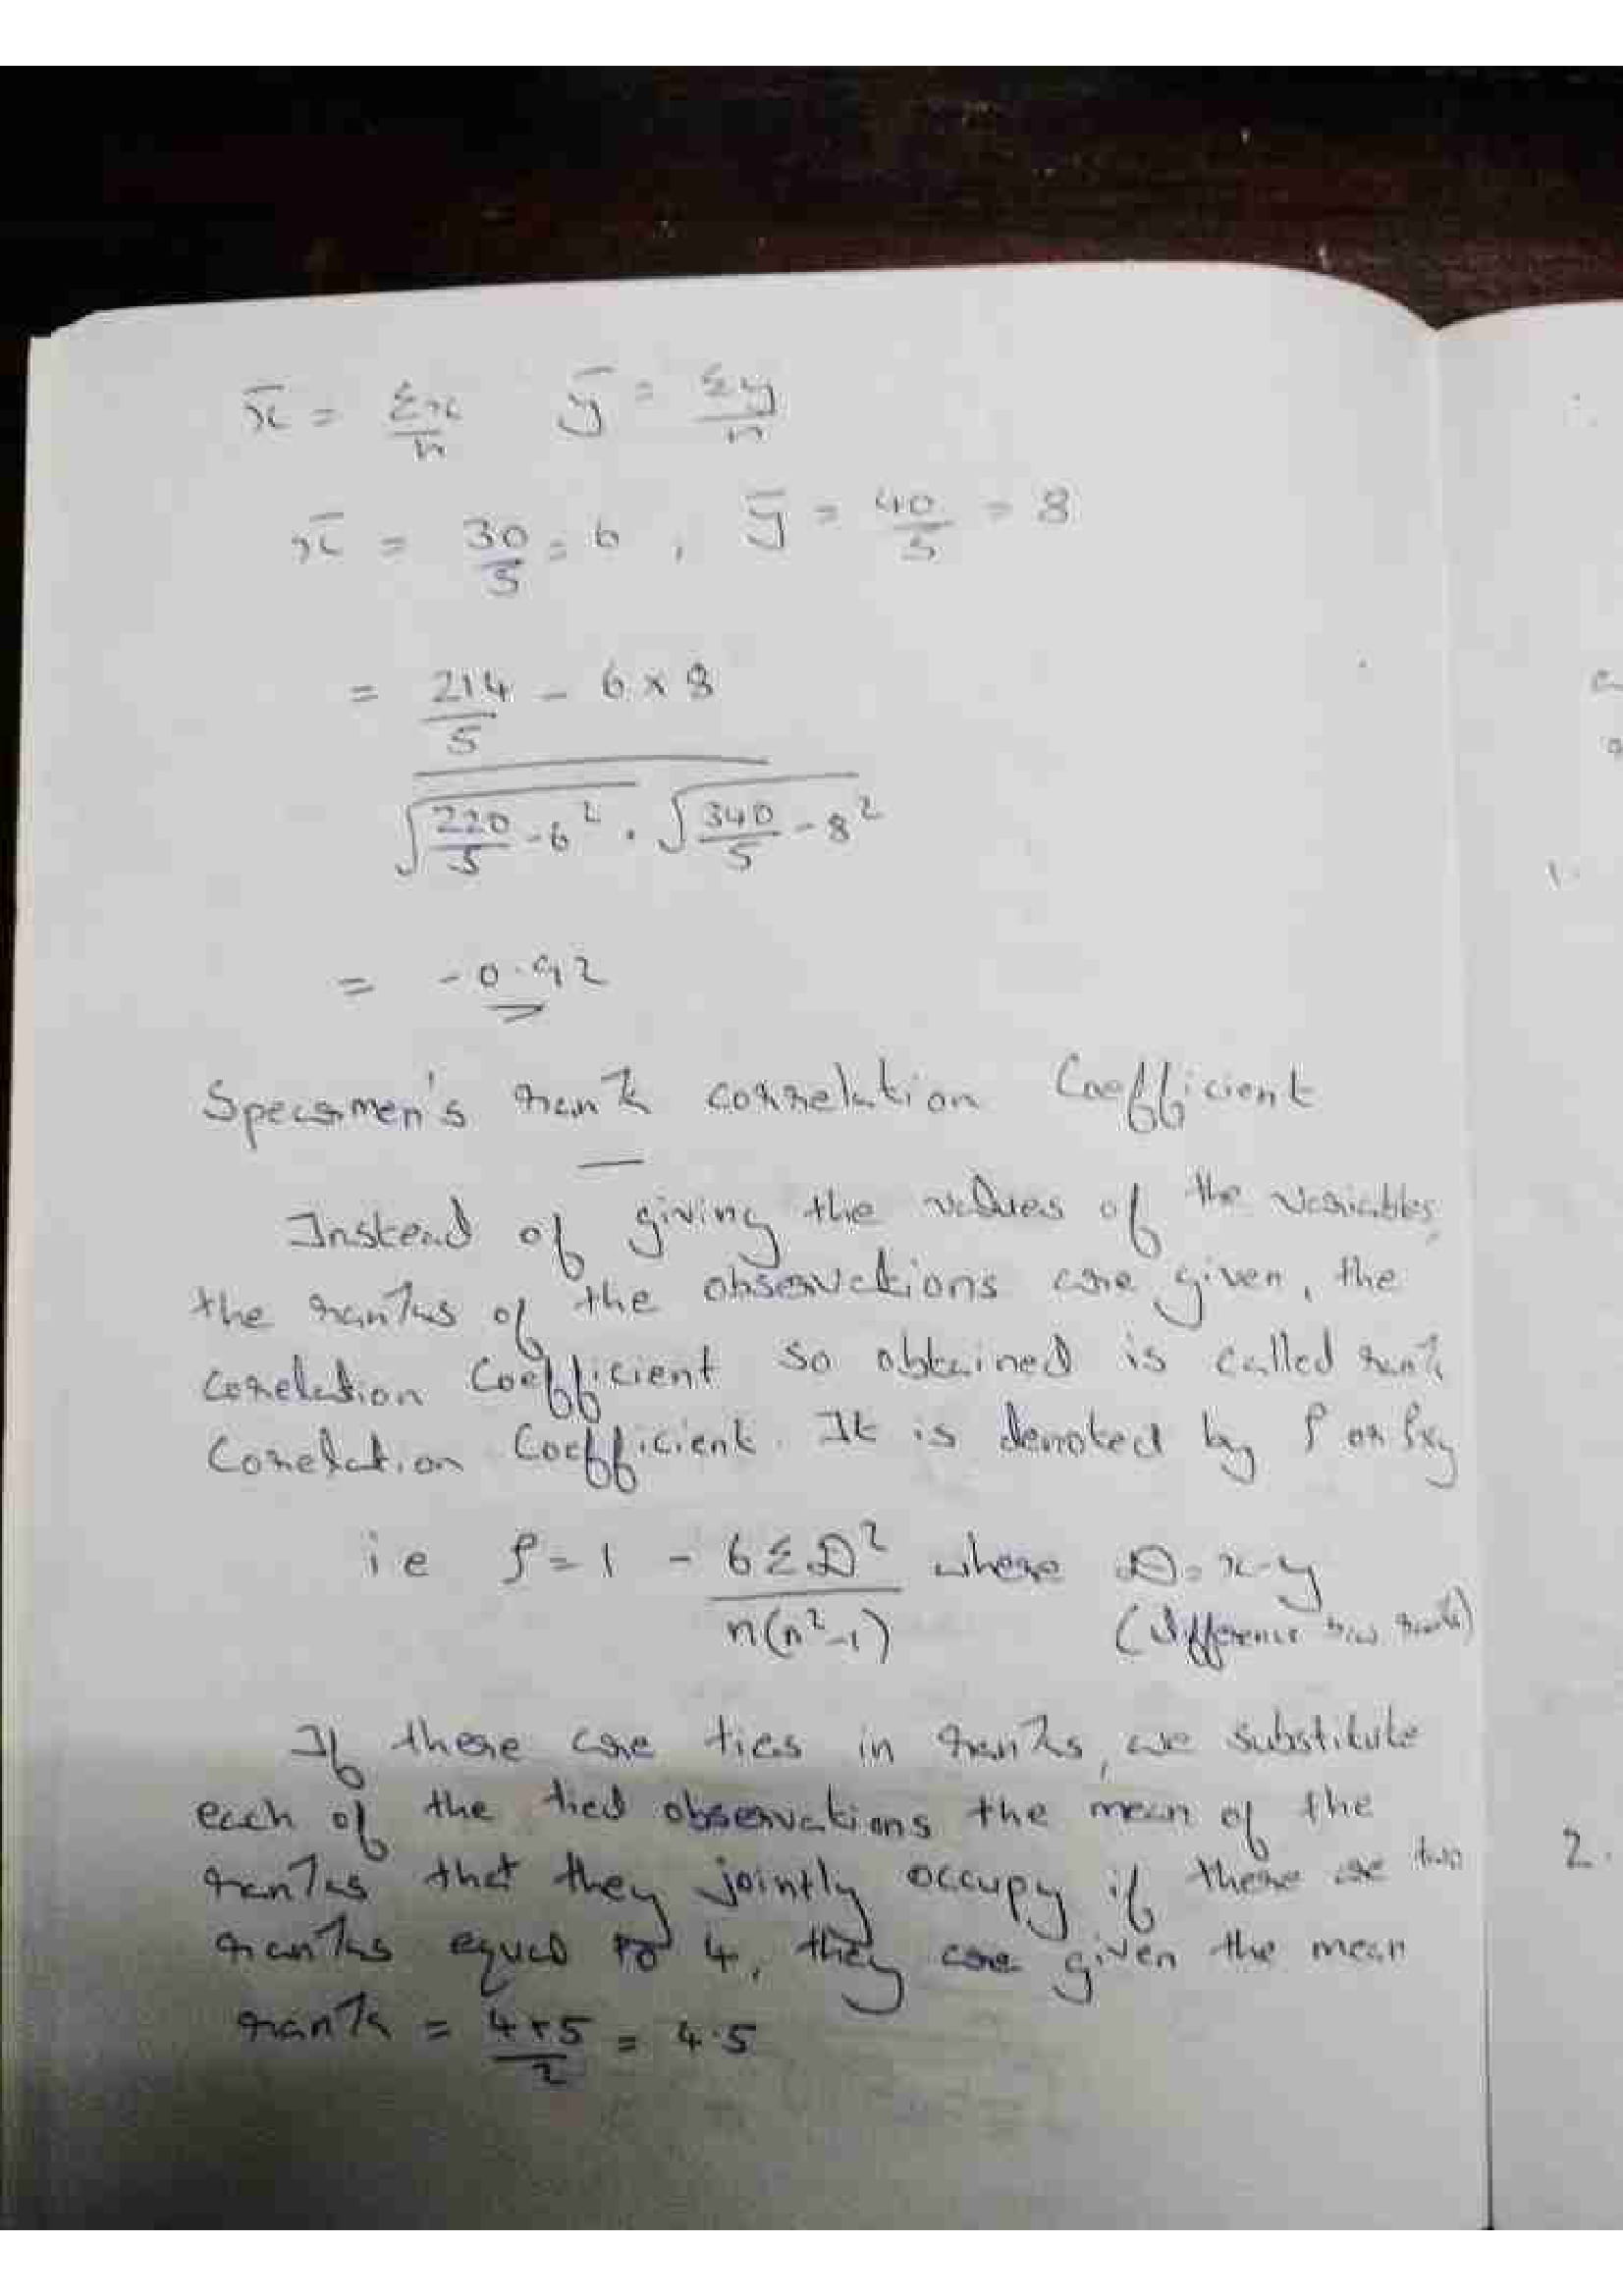 x̄ = Σx/n   ȳ = Σy/n
x̄ = 30/5 = 6 , ȳ = 40/5 = 8
= (214/5 - 6 × 8) / (√(220/5 - 6²) · √(340/5 - 8²))
= -0.92
Specsmen's rank correlation Coefficient
Instead of giving the values of the variables,
the ranks of the observations are given, the
corelation Coefficient so obtained is called rank
Corelation Coefficient. It is denoted by ρ or ρxy
i e ρ = 1 - 6ΣD²/n(n²-1) where D = x-y
(difference b/w ranks)
If there are ties in ranks, we substitute
each of the tied observations the mean of the
ranks that they jointly occupy if there are two
ranks equal to 4, they are given the mean
rank = 4+5/2 = 4.5
1.
2.